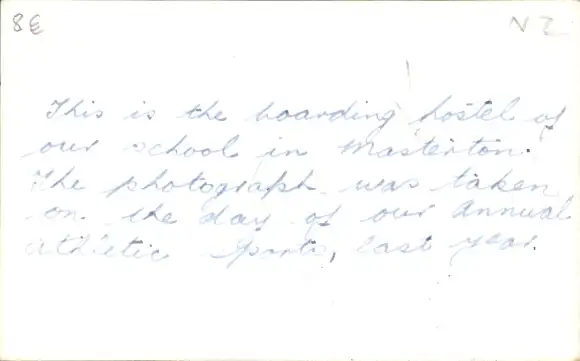 8€ NZ
This is the boarding hostel of
our school in Masterton.
The photograph was taken
on the day of our Annual
Athletic Sports, last year.